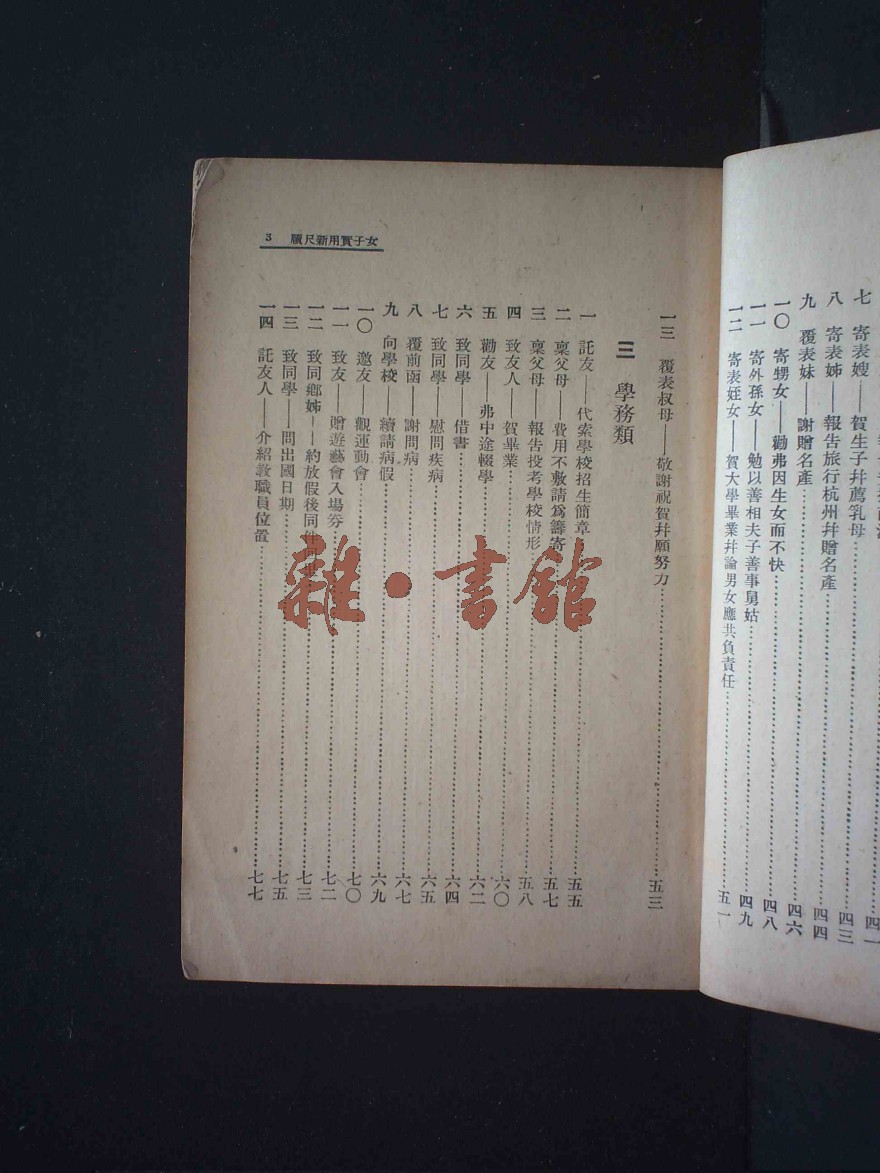 七 寄表嫂——賀生子幷薦乳母 四一
八 寄表姊——報告旅行杭州幷贈名產 四三
九 覆表妹——謝贈名產 四四
一〇 寄甥女——勸弗因生女而不快 四六
一一 寄外孫女——勉以善相夫子善事舅姑 四八
一二 寄表姪女——賀大學畢業幷論男女應共負責任 四九
五一
女子實用新尺牘 3
一三 覆表叔母——敬謝祝賀幷願努力 五三
三 學務類
一 託友——代索學校招生簡章 五五
二 稟父母——費用不敷請爲籌寄 五七
三 稟父母——報告投考學校情形 五八
四 致友人——賀畢業 六〇
五 勸友——弗中途輟學 六二
六 致同學——借書 六四
七 致同學——慰問疾病 六五
八 覆前函——謝問病 六七
九 向學校——續請病假 六九
一〇 邀友——觀運動會 七〇
一一 致友——贈遊藝會入場券 七二
一二 致同鄕姊——約放假後同 七三
一三 致同學——問出國日期 七五
一四 託友人——介紹敎職員位置 七七
雜·書館